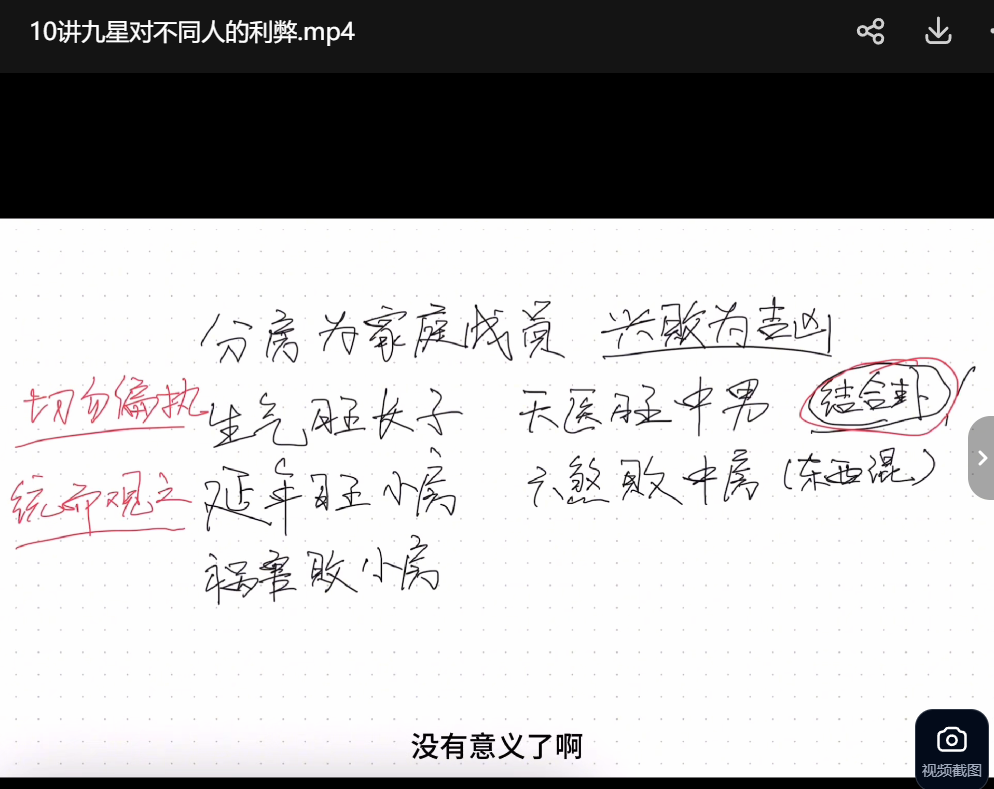 10讲九星对不同人的利弊.mp4
分房为家庭成员 兴败为吉凶
切勿偏执 生气旺长子 天医旺中男 结合卦
统而观之 延年旺小房 六煞败中房（东西混）
祸害败小房
没有意义了啊
视频截图